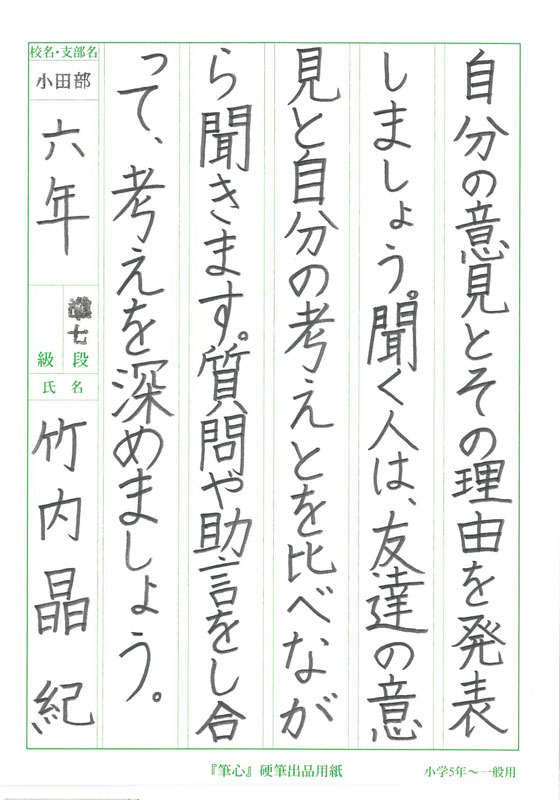 自分の意見とその理由を発表
しましょう。聞く人は、友達の意
見と自分の考えとを比べなが
ら聞きます。質問や助言をし合
って、考えを深めましょう。
校名・支部名
小田部
六年
準七
級 段
氏 名
竹内晶紀
『筆心』硬筆出品用紙
小学5年〜一般用